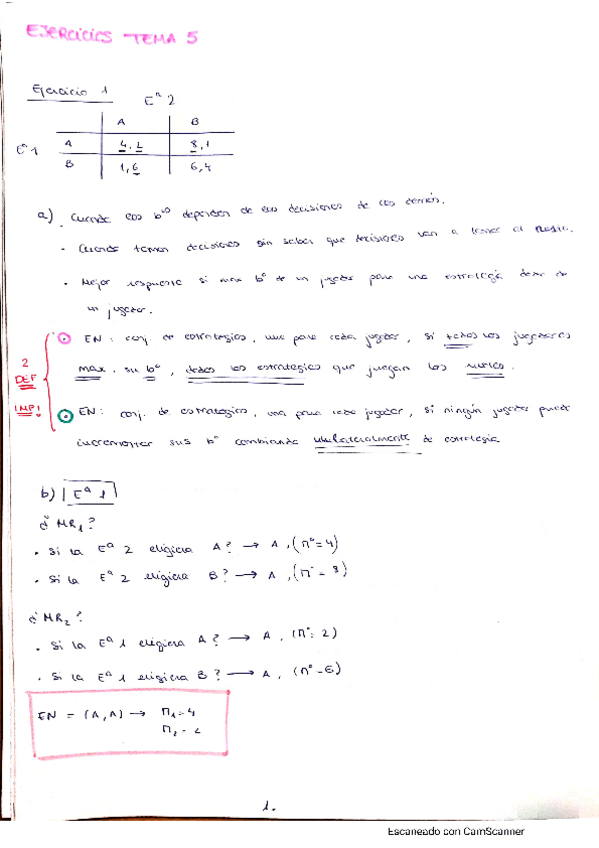 EJERCICIOS - TEMA 5
Ejercicio 1
Eª 2
A B
Eª 1 A 4, 2 8, 1
B 1, 6 6, 4
a) . Cuando los bºs dependen de las decisiones de los demás.
· Cuando toman decisiones sin saber que decisiones van a tomar el
· Mejor respuesta si max bº de un jugador para una estrategia dada de
un jugador.
EN: conj. de estrategias, una para cada jugador, si todos los jugadores
max. su bº, dadas las estrategias que juegan los
2 DEF IMP!
EN: conj. de estrategias, una para cada jugador, si ningún jugador puede
incrementar sus bº cambiando unilateralmente de estrategia
b) Eª 1
¿MR₁?
· Si la Eª 2 eligiera A? → A, (πº = 4)
· Si la Eª 2 eligiera B? → A, (π = 8)
¿MR₂?
· Si la Eª 1 eligiera A? → A, (πº: 2)
· Si la Eª 1 eligiera B? → A, (πº = 6)
EN = (A, A) → π₁ = 4
π₂ = 2
1.
Escaneado con CamScanner